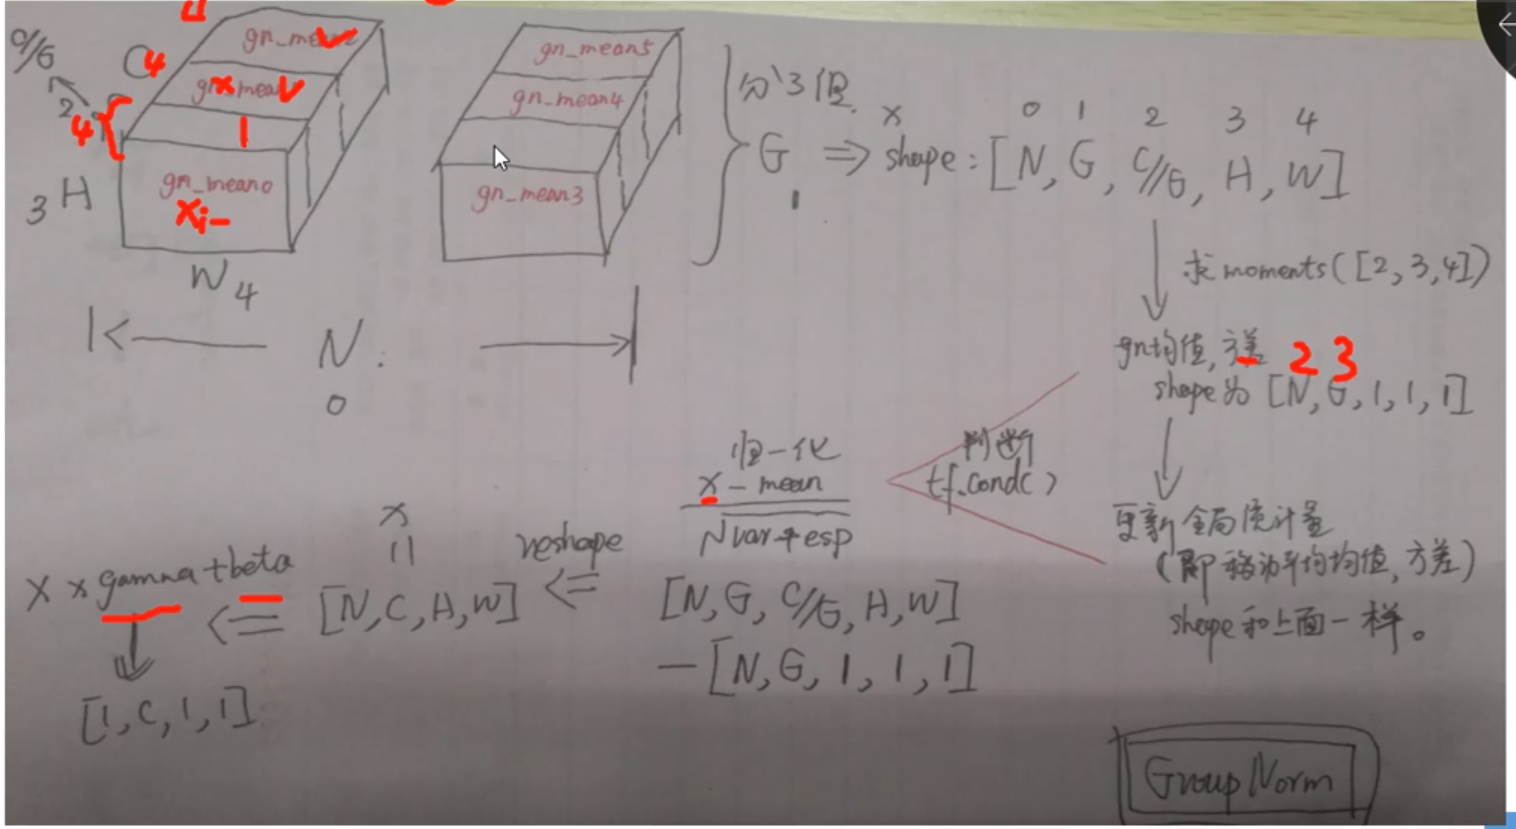 C/G
C 4
2
4
gn_mean2
gn_mean
1
gn_mean0
xi-
3 H
W 4
gn_mean5
gn_mean4
gn_mean3
分3组
G
1
⇒
x
0 1 2 3 4
shape: [N, G, C//G, H, W]
求moments([2,3,4])
gn均值,方差
2 3
shape为 [N,G,1,1,1]
更新全局统计量
(即移动平均均值,方差)
shape和上面一样。
N
0
判断
tf.cond()
归一化
x - mean
√var+esp
[N,G,C//G,H,W]
-[N,G,1,1,1]
reshape
⇐
x
=
[N,C,H,W]
⇐
x x gamma + beta
[1,C,1,1]
GroupNorm